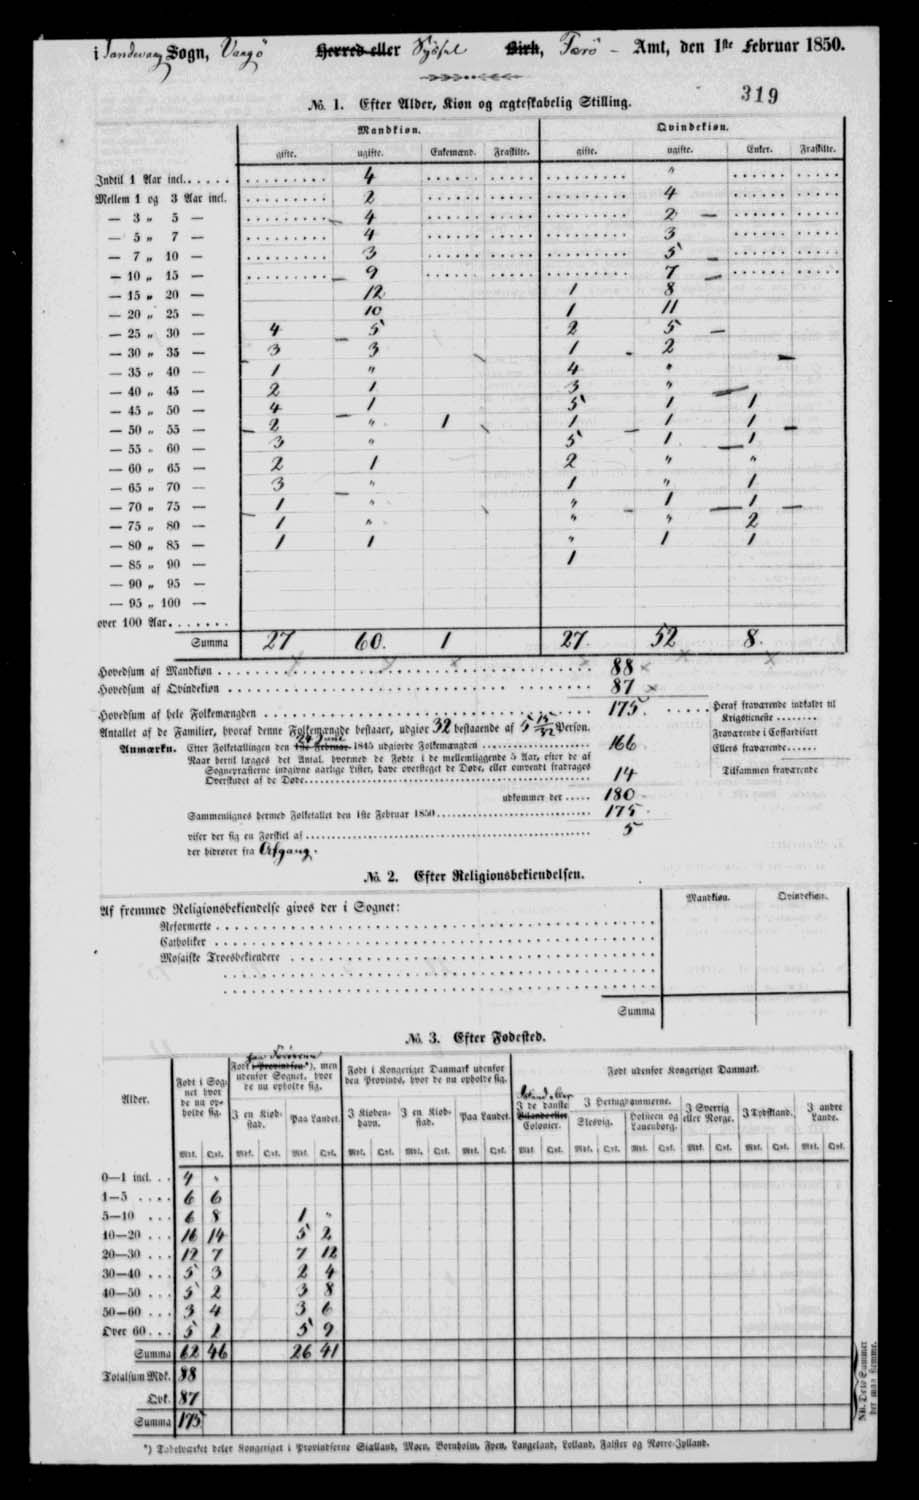 i Sandevaag Sogn, Vaagö Herred eller Syssel Birk, Færö – Amt, den 1ste Februar 1850.
319
No. 1. Efter Alder, Kiøn og ægteskabelig Stilling.
Mandkiøn. Qvindekiøn.
gifte. ugifte. Enkemænd. Fraskilte. gifte. ugifte. Enker. Fraskilte.
Indtil 1 Aar incl. 4 "
Mellem 1 og 3 Aar incl. 2 4
— 3 „ 5 — 4 2
— 5 „ 7 — 4 3
— 7 „ 10 — 3 5
— 10 „ 15 — 9 7
— 15 „ 20 — 12 1 8
— 20 „ 25 — 10 1 11
— 25 „ 30 — 4 5 2 5
— 30 „ 35 — 3 3 1 2
— 35 „ 40 — 1 " 4 "
— 40 „ 45 — 2 1 3 "
— 45 „ 50 — 4 1 5 1 1
— 50 „ 55 — 2 " 1 1 1 1
— 55 „ 60 — 3 " 5 1 1
— 60 „ 65 — 2 1 2 " "
— 65 „ 70 — 3 " 1 " 1
— 70 „ 75 — 1 " " 1 1
— 75 „ 80 — 1 " " " 2
— 80 „ 85 — 1 1 " 1 1
— 85 „ 90 — 1
— 90 „ 95 —
— 95 „ 100 —
over 100 Aar.
Summa 27 60. 1 27. 52 8.
Hovedsum af Mandkiøn 88
Hovedsum af Qvindekiøn 87
Hovedsum af hele Folkemængden 175.
Antallet af de Familier, hvoraf denne Folkemængde bestaaer, udgiør 32 bestaaende af 5 15/32 Person.
Anmærkn. Efter Folketællingen den 1ste Februar 1845 udgiorde Folkemængden 166
Naar hertil lægges det Antal, hvormed de Fødte i de mellemliggende 5 Aar, efter de af
Sognepræsterne indgivne aarlige Lister, have oversteget de Døde, eller omvendt fradrages
Overskudet af de Døde 14
udkommer der 180
Sammenlignes hermed Folketallet den 1ste Februar 1850 175
viser der sig en Forskiel af 5
der hidrører fra Afgang.
Heraf fraværende indkaldt til
Krigstieneste
Fraværende i Coffardifart
Ellers fraværende
Tilsammen fraværende
No. 2. Efter Religionsbekiendelsen.
Mandkiøn. Qvindekiøn.
Af fremmed Religionsbekiendelse gives der i Sognet:
Reformerte
Catholiker
Mosaiske Troesbekiendere
Summa
No. 3. Efter Fødested.
Alder.
Født i Sognet hvor de nu opholde sig.
Født i Provindsen*), men udenfor Sognet, hvor de nu opholde sig.
Født i Kongeriget Danmark udenfor den Provinds, hvor de nu opholde sig.
Født udenfor Kongeriget Danmark.
I en Kiøbstad. Paa Landet. I Kiøbenhavn. I en Kiøbstad. Paa Landet.
I de danske Bilande eller Colonier.
I Hertugdømmerne.
Slesvig. Holsteen og Lauenborg.
I Sverrig eller Norge. I Tydskland. I andre Lande.
Mdk. Qvk. Mdk. Qvk. Mdk. Qvk. Mdk. Qvk. Mdk. Qvk. Mdk. Qvk. Mdk. Qvk. Mdk. Qvk. Mdk. Qvk. Mdk. Qvk. Mdk. Qvk. Mdk. Qvk.
0—1 incl. 4 "
1—5 6 6
5—10 6 8 1 "
10—20 16 14 5 2
20—30 12 7 7 12
30—40 5 3 2 4
40—50 5 2 3 8
50—60 3 4 3 6
Over 60 5 2 5 9
Summa 62 46 26 41
Totalsum Mdk. 88
Qvk. 87
Summa 175
NB. Dette Summer
der maa stemme.
*) Tabelværket deler Kongeriget i Provindserne Siælland, Møen, Bornholm, Fyen, Langeland, Lolland, Falster og Nørre-Jylland.